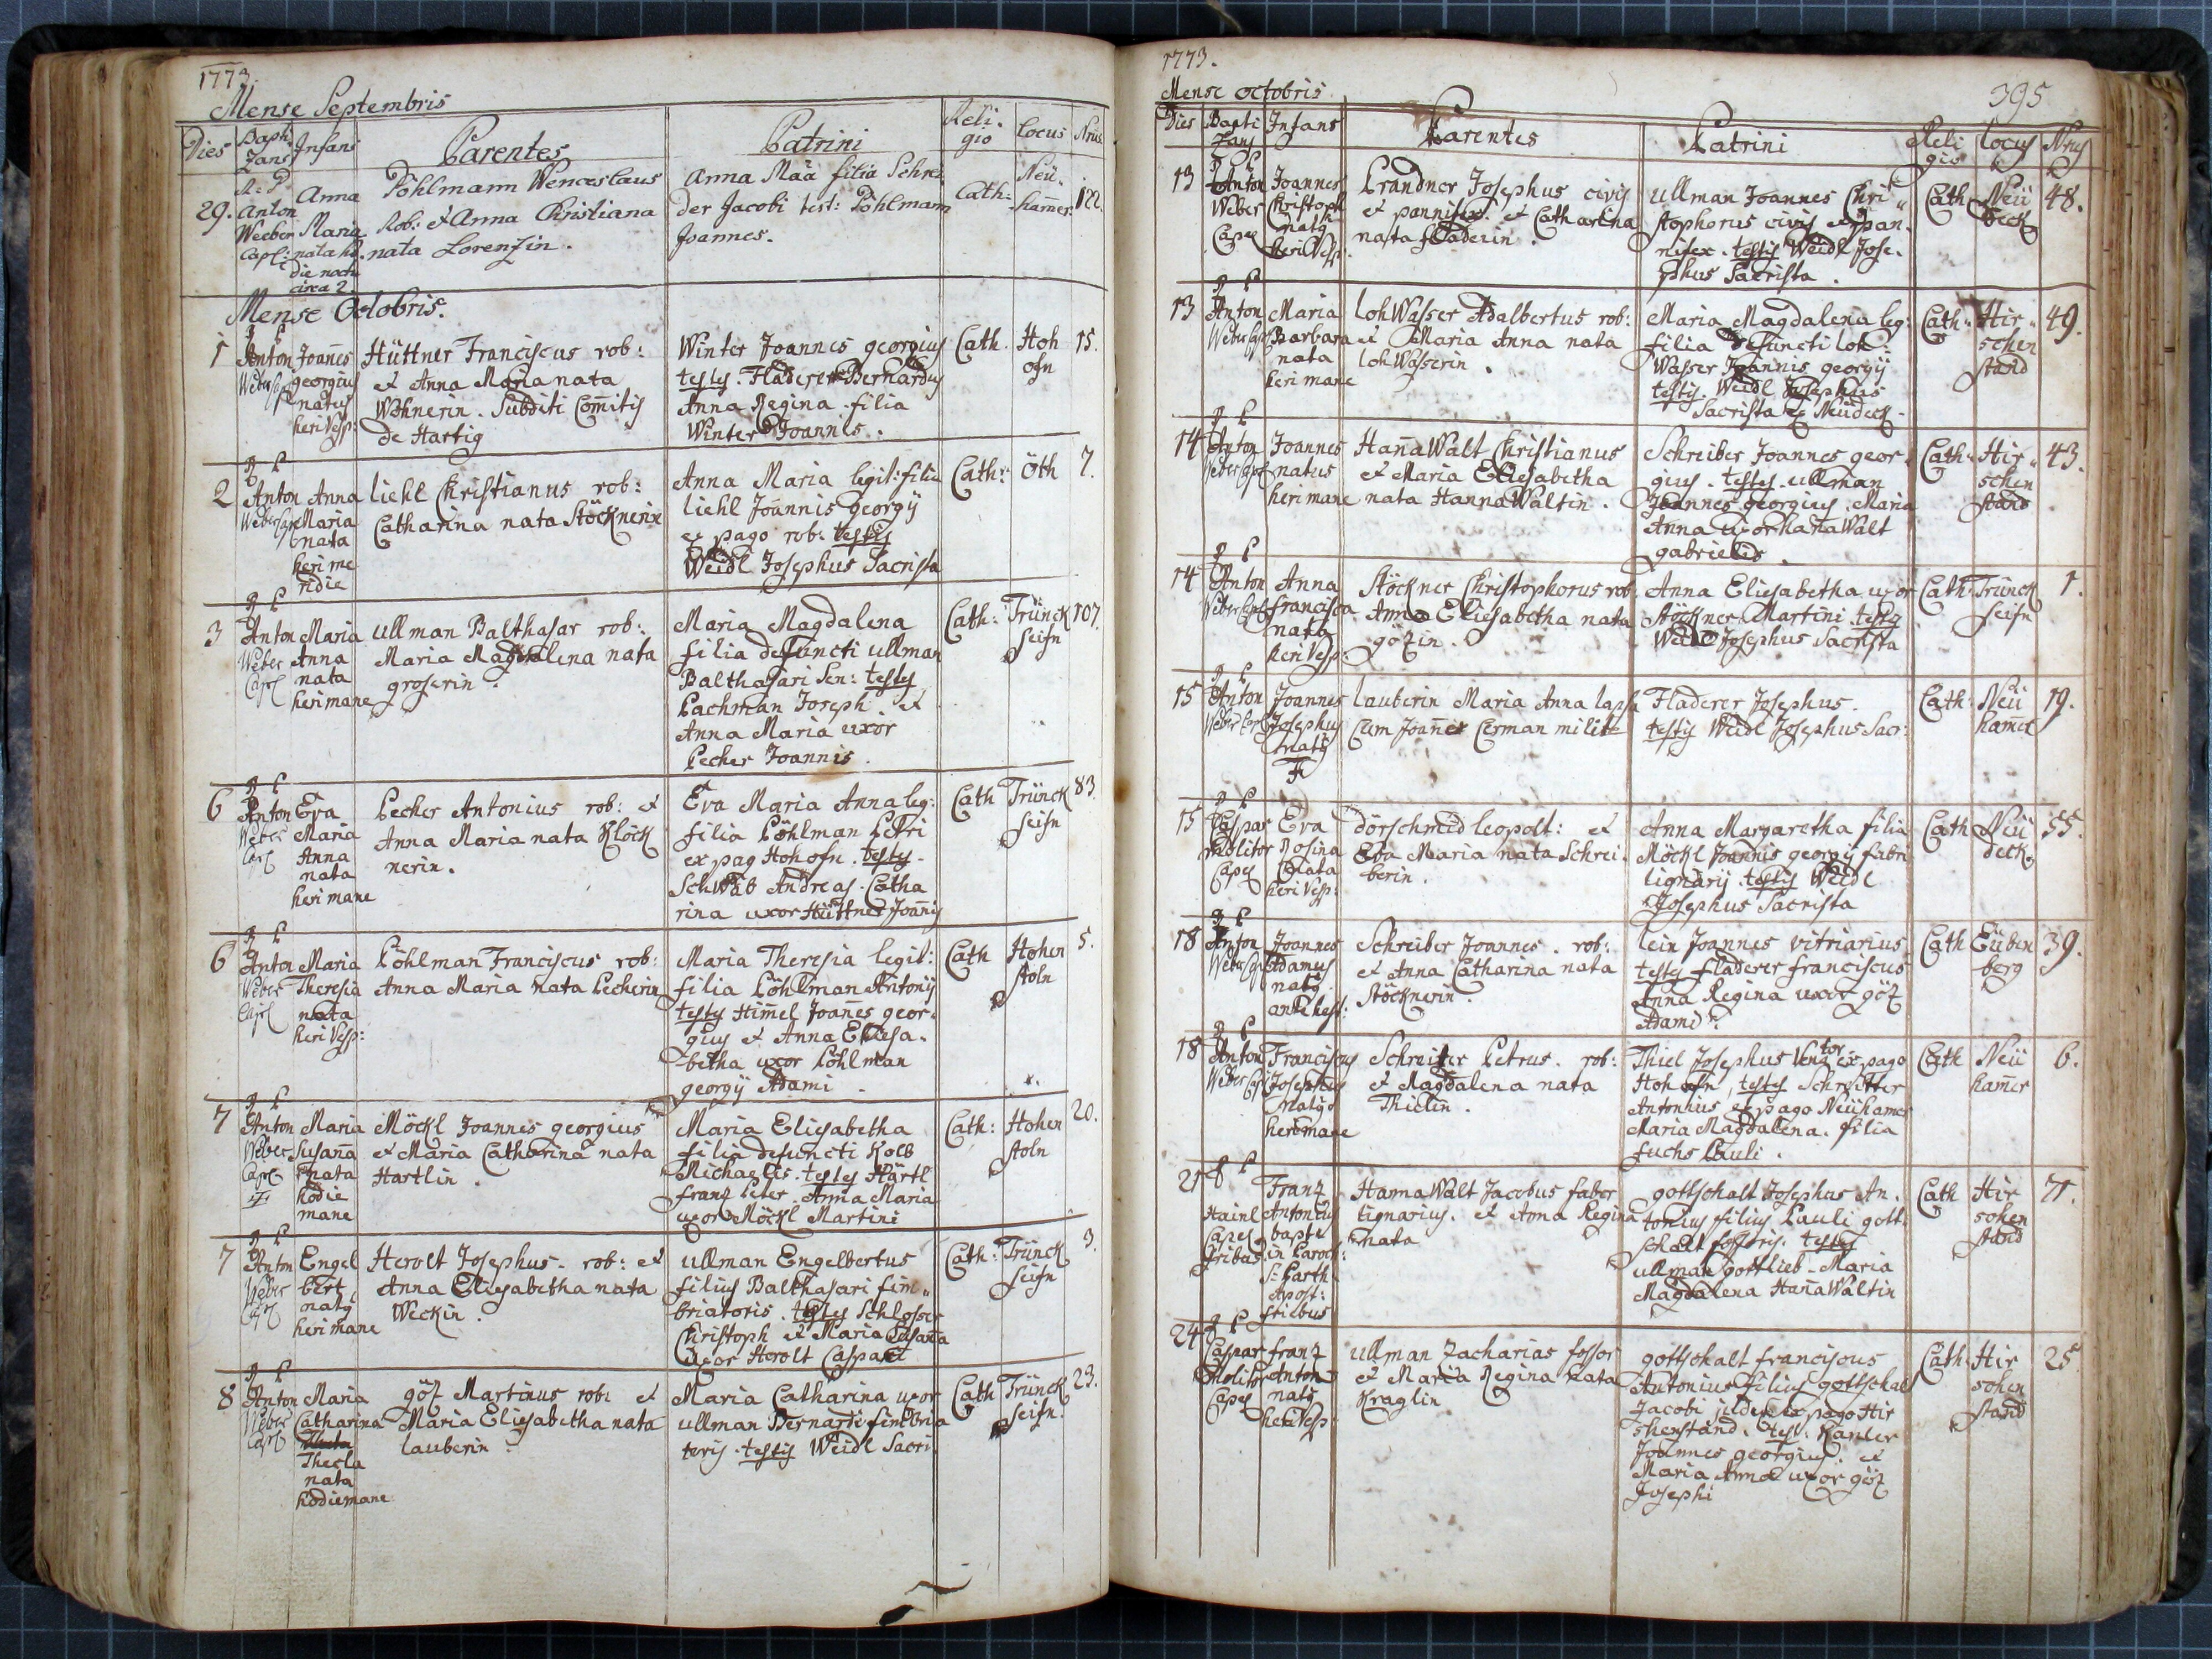 1773.
Mense Septembris
Dies
Infans
Parentes
Patrini
Reli-
gio
Locus
Nrus
29.
Anton
Weeber
Capl:
Anna
Maria
nata ho
die noctu
circa 2.
Pöhlmann Wenceslaus
Rob: et Anna Christiana
nata Lorenzin.
Anna Mäa filia Schrei
der Jacobi test: Pöhlmam
Joannes.
Cath:
Neü.
ham̄er.
122.
Mense Octobris.
1
Anton
Weber
Joan̄es
georgius
natus
heri Vesp:
Hüttner Franciscus rob:
et Anna Maria nata
Wohnerin. Subditi Com̄itis
de Hartig
Winter Joannes georgius
testes. Fladerer Bernardus
Anna Regina filia
Winter Joannes.
Cath.
Hoh
ofn
15.
2
Anton
Anna
Maria
nata
heri me
ridie
liehl Christianus rob:
Catharina nata Stöcknerin
Anna Maria legit: filia
liehl Joannis georgÿ
ex pago rob: testis
Weidl Josephus Sacrista
Cath:
öth
7.
3
Anton
Weber
Capl
Maria
Anna
nata
heri mane
Ullman Balthasar rob:
Maria Magdalena nata
groserin.
Maria Magdalena
filia defuncti ullman
Balthasari Sen: testes
Lachman Joseph. et
Anna Maria uxor
Lecher Joannis.
Cath:
Trünck
seifn
107.
6
Anton
Weber
Capl
Eva
Maria
Anna
nata
heri mane
Lecher Antonius rob: et
Anna Maria nata Klöck
nerin.
Eva Maria Anna leg:
filia Löhlman Petri
ex pag Hohofn. testes.
Schwab Andreas. Catha
rina uxor Hüttner Joannis
Cath
Trünck
seifn
83.
6
Anton
Weber
Capl
Maria
Theresia
nata
heri Vesp:
Löhlman Franciscus rob:
Anna Maria nata Lecherin
Maria Theresia legit:
filia Löhlman Antonÿ
testes Him̄el Joan̄es geor.
gius et Anna Eliesa.
betha uxor Löhlman
georgÿ Adami
Cath
Hohen
stoln
5.
7
Anton
Weber
Capl
Maria
Susan̄a
nata
hodie
mane
Möckl Joannes georgius
et Maria Catharina nata
Hartlin.
Maria Eliesabetha
filia defuncti Kolb
Michaelis. testes Härtl
franz Peter. Anna Maria
uxor Möckl Martini
Cath:
Hohen
stoln
20.
7
Anton
Weber
Capl
Engel
bert
nats
heri mane
Herolt Josephus. rob: et
Anna Eliesabetha nata
Weckin.
ullman Engelbertus
filius Balthasari fim„
briatoris. testes Schlosser
Christoph et Maria Susan̄a
uxor Herolt Caspari
Cath:
Trünck
seifn
3.
8
Anton
Weber
Capl
Maria
Catharina
Thecla
nata
hodie mane
göz Martinus rob: et
Maria Eliesabetha nata
lauberin.
Maria Catharina uxor
ullman Bernardi fimbria
toris. testis Weidl Sacri.
Cath
Trünck
seifn.
23.
1773.
Mense octobris
395
Dies
Bapti
Infans
Parentes
Patrini
Reli
gio
locus
Nrus
13
Anton
Weber
Capel
Joannes
Christoph
nats
heri Vesp.
Brandner Josephus civis
et pannifex. et Catharina
nata fladerin.
ullman Joannes Chri„
stophorus civis et pan.
nifex. testis Weidl Jose.
phus Sacrista.
Cath
Neü
deck
48.
13
Anton
Weber Capl
Maria
Barbara
nata
heri mane
lohWasser Adalbertus rob:
et Maria Anna nata
lohWasserin.
Maria Magdalena leg:
filia defuncti loh
Wasser Joannis georgÿ
testis. Weidl Josephus
Sacrista ex Neüdeck.
Cath:
Hir„
schen
stand
49.
14
Anton
Weber Capl
Joannes
natus
heri mane
Han̄aWalt Christianus
et Maria Eliesabetha
nata HannaWaltin.
Schreiber Joannes geor.
gius. testes. ullman
Joannes georgius. Maria
Anna uxor Han̄aWalt
gabrielis.
Cath:
Hir„
schen
stand
43.
14
Anton
Weber Capl
Anna
francisca
nata
heri Vesp:
Stöckner Christophorus rob.
Anna Eliesabetha nata
götzin.
Anna Eliesabetha uxor
Stöckner Martini. testis
Weidl Josephus Sacrista
Cath:
Trünck
seifn
1.
15
Anton
Weber Capl
Joannes
Josephus
nats
lauberin Maria Anna lapsa
Cum Joan̄es Cerman milite
Fladerer Josephus.
testis Weidl Josephus Sacr:
Cath:
Neü
ham̄er
19.
15
Caspar
Molitor
Capel
Eva
Rosina
nata
heri Vesp:
dörschmid leopolt: et
Eva Maria nata Schrei.
berin.
Anna Margaretha filia
Möckl Joannis georgÿ fabri
lignarÿ. testis Weidl
Josephus Sacrista
Cath
Neü
deck
55.
18
Anton
Weber Capl
Joannes
Adamus
nats
Schreiber Joannes. rob:
et Anna Catharina nata
Stöcknerin.
lein Joannes vitriarius
testes fladerer franciscus
Anna Regina uxor göz
Adami.
Cath
Eüben
berg
39.
18
Anton
Weber Capl
Franciscus
Josephus
natus
heri mane
Schreiter Petrus. rob:
et Magdalena nata
Thielin.
Thiel Josephus ex pago
Hohofn, testes Schreitter
Antonius ex pago Neüham̄er
Maria Magdalena. filia
fuchs Pauli.
Cath
Neü
ham̄er
6.
21
Hainl
Capel
fribus
Franz
Antonius
bapts
in Paroch:
S: Barth:
Apost:
friebus
HannaWalt Jacobus faber
lignarius. et Anna Regina
nata
gottschalt Josephus An.
tonius filius Pauli gott.
schalt fossoris. testes
ullman gottlieb. Maria
Magdalena Han̄aWaltin
Cath
Hir
schen
stand
71.
24
Caspar
Molitor
Capel
franz
Anton
nats
heri Vesp.
Ullman Zacharias fossor
et Maria Regina nata
Kraglin.
gottschalt franciscus
Antonius filius gottschal
Jacobi ex pago Hir
shenstand. test.
Joannes georgius. et
Maria Anna uxor göz
Josephi
Cath:
Hir
schen
stand
25